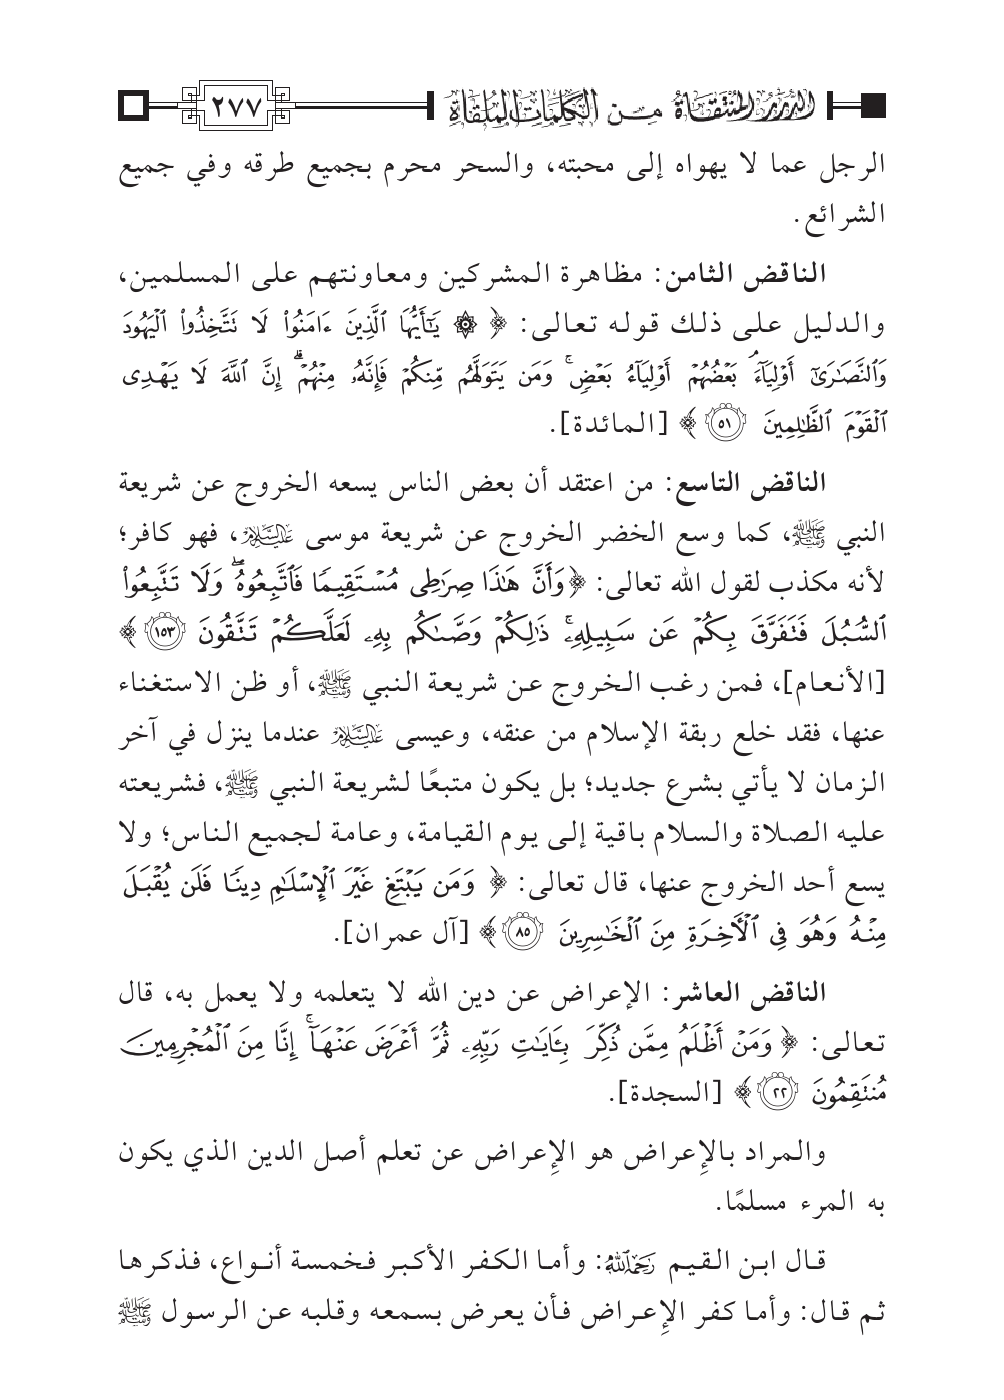 الدرر المنتقاة من الكلمات الملقاة ٢٧٧
الرجل عما لا يهواه إلى محبته، والسحر محرم بجميع طرقه وفي جميع
الشرائع.
الناقض الثامن: مظاهرة المشركين ومعاونتهم على المسلمين،
والدليل على ذلك قوله تعالى: ﴿ ۞ يَٰٓأَيُّهَا ٱلَّذِينَ ءَامَنُوا۟ لَا تَتَّخِذُوا۟ ٱلْيَهُودَ
وَٱلنَّصَٰرَىٰٓ أَوْلِيَآءَ ۘ بَعْضُهُمْ أَوْلِيَآءُ بَعْضٍ ۚ وَمَن يَتَوَلَّهُم مِّنكُمْ فَإِنَّهُۥ مِنْهُمْ ۗ إِنَّ ٱللَّهَ لَا يَهْدِى
ٱلْقَوْمَ ٱلظَّٰلِمِينَ ٥١ ﴾ [المائدة].
الناقض التاسع: من اعتقد أن بعض الناس يسعه الخروج عن شريعة
النبي ﷺ، كما وسع الخضر الخروج عن شريعة موسى عليه السلام، فهو كافر؛
لأنه مكذب لقول الله تعالى: ﴿ وَأَنَّ هَٰذَا صِرَٰطِى مُسْتَقِيمًا فَٱتَّبِعُوهُ ۖ وَلَا تَتَّبِعُوا۟
ٱلسُّبُلَ فَتَفَرَّقَ بِكُمْ عَن سَبِيلِهِۦ ۚ ذَٰلِكُمْ وَصَّىٰكُم بِهِۦ لَعَلَّكُمْ تَتَّقُونَ ١٥٣ ﴾
[الأنعام]، فمن رغب الخروج عن شريعة النبي ﷺ، أو ظن الاستغناء
عنها، فقد خلع ربقة الإسلام من عنقه، وعيسى عليه السلام عندما ينزل في آخر
الزمان لا يأتي بشرع جديد؛ بل يكون متبعًا لشريعة النبي ﷺ، فشريعته
عليه الصلاة والسلام باقية إلى يوم القيامة، وعامة لجميع الناس؛ ولا
يسع أحد الخروج عنها، قال تعالى: ﴿ وَمَن يَبْتَغِ غَيْرَ ٱلْإِسْلَٰمِ دِينًا فَلَن يُقْبَلَ
مِنْهُ وَهُوَ فِى ٱلْءَاخِرَةِ مِنَ ٱلْخَٰسِرِينَ ٨٥ ﴾ [آل عمران].
الناقض العاشر: الإعراض عن دين الله لا يتعلمه ولا يعمل به، قال
تعالى: ﴿ وَمَنْ أَظْلَمُ مِمَّن ذُكِّرَ بِـَٔايَٰتِ رَبِّهِۦ ثُمَّ أَعْرَضَ عَنْهَآ ۚ إِنَّا مِنَ ٱلْمُجْرِمِينَ
مُنتَقِمُونَ ٢٢ ﴾ [السجدة].
والمراد بالإعراض هو الإعراض عن تعلم أصل الدين الذي يكون
به المرء مسلمًا.
قال ابن القيم رحمه الله: وأما الكفر الأكبر فخمسة أنواع، فذكرها
ثم قال: وأما كفر الإعراض فأن يعرض بسمعه وقلبه عن الرسول ﷺ